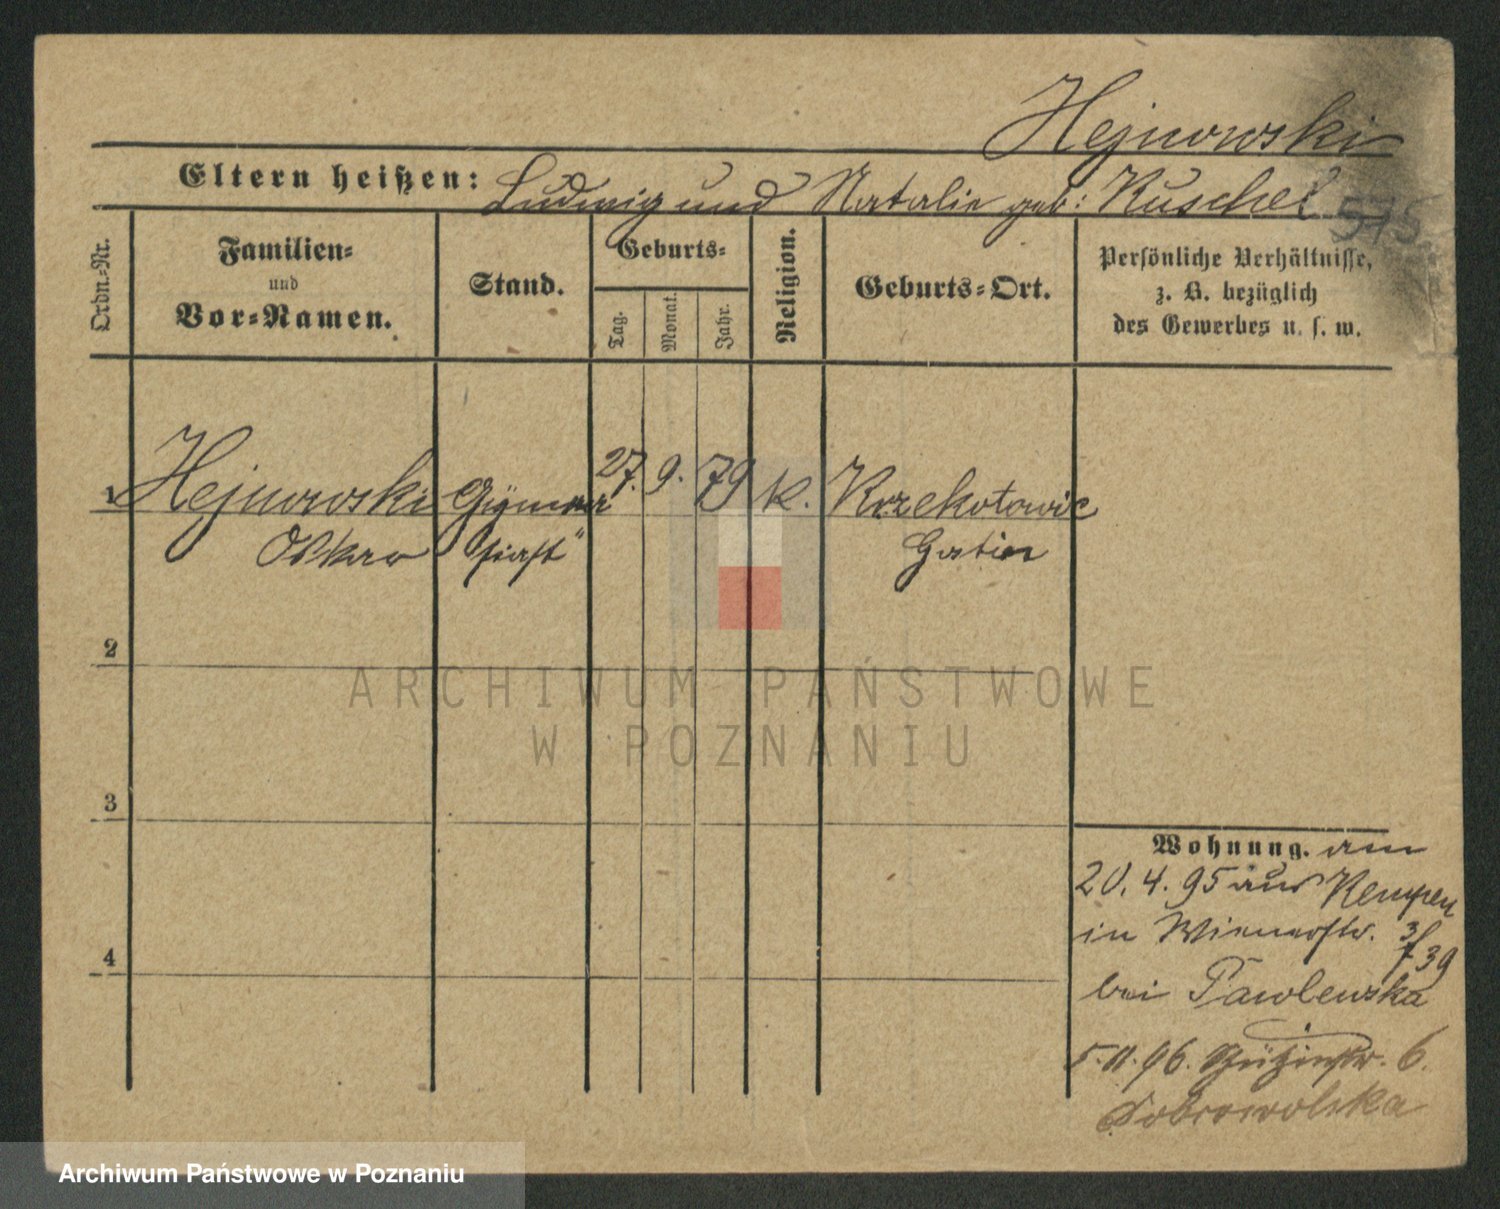 Hejnowski
Eltern heißen: Ludwig und Natalie geb: Kuschel
575
Ordn.-Nr.
Familien- und Vor-Namen.
Stand.
Geburts-
Tag.
Monat.
Jahr.
Religion.
Geburts-Ort.
Persönliche Verhältnisse,
z. B. bezüglich
des Gewerbes u. s. w.
1 Hejnowski Gymna 27. 9. 79 K. Krzekotowic
Oskar siast"
2
3
4
Wohnung. am
20. 4. 95 aus Kempen
in Wienerstr. 3/
7 39
bei Pawlewska
5. 11. 96. 6.
Dobrowolska
ARCHIWUM PAŃSTWOWE
W POZNANIU
Archiwum Państwowe w Poznaniu